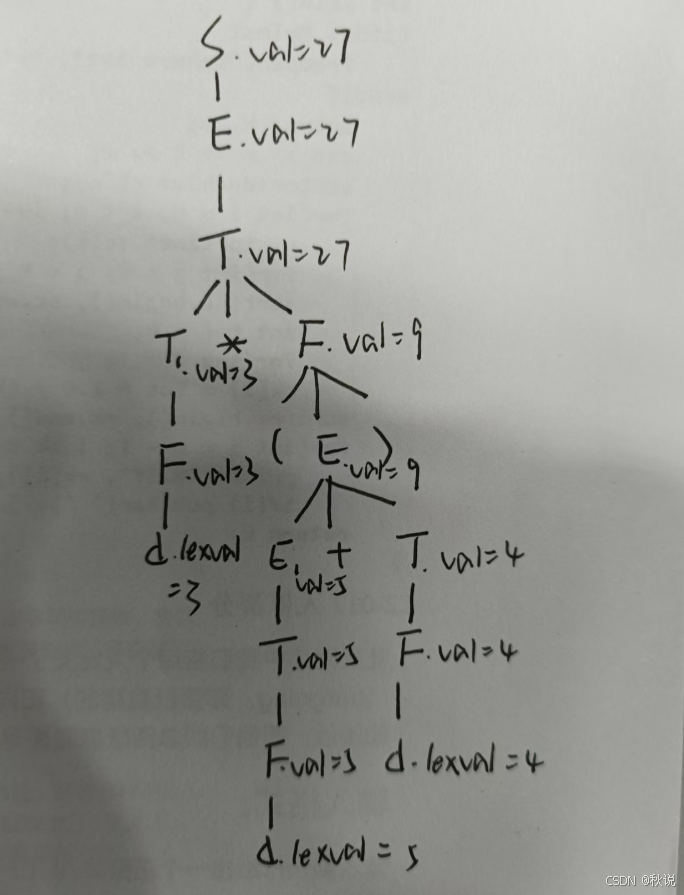 S.val=27
E.val=27
T.val=27
T₁.val=3 * F.val=9
F.val=3 ( E.val=9 )
d.lexval=3 E₁.val=5 + T.val=4
T.val=5 F.val=4
F.val=5 d.lexval=4
d.lexval=5
CSDN @秋说